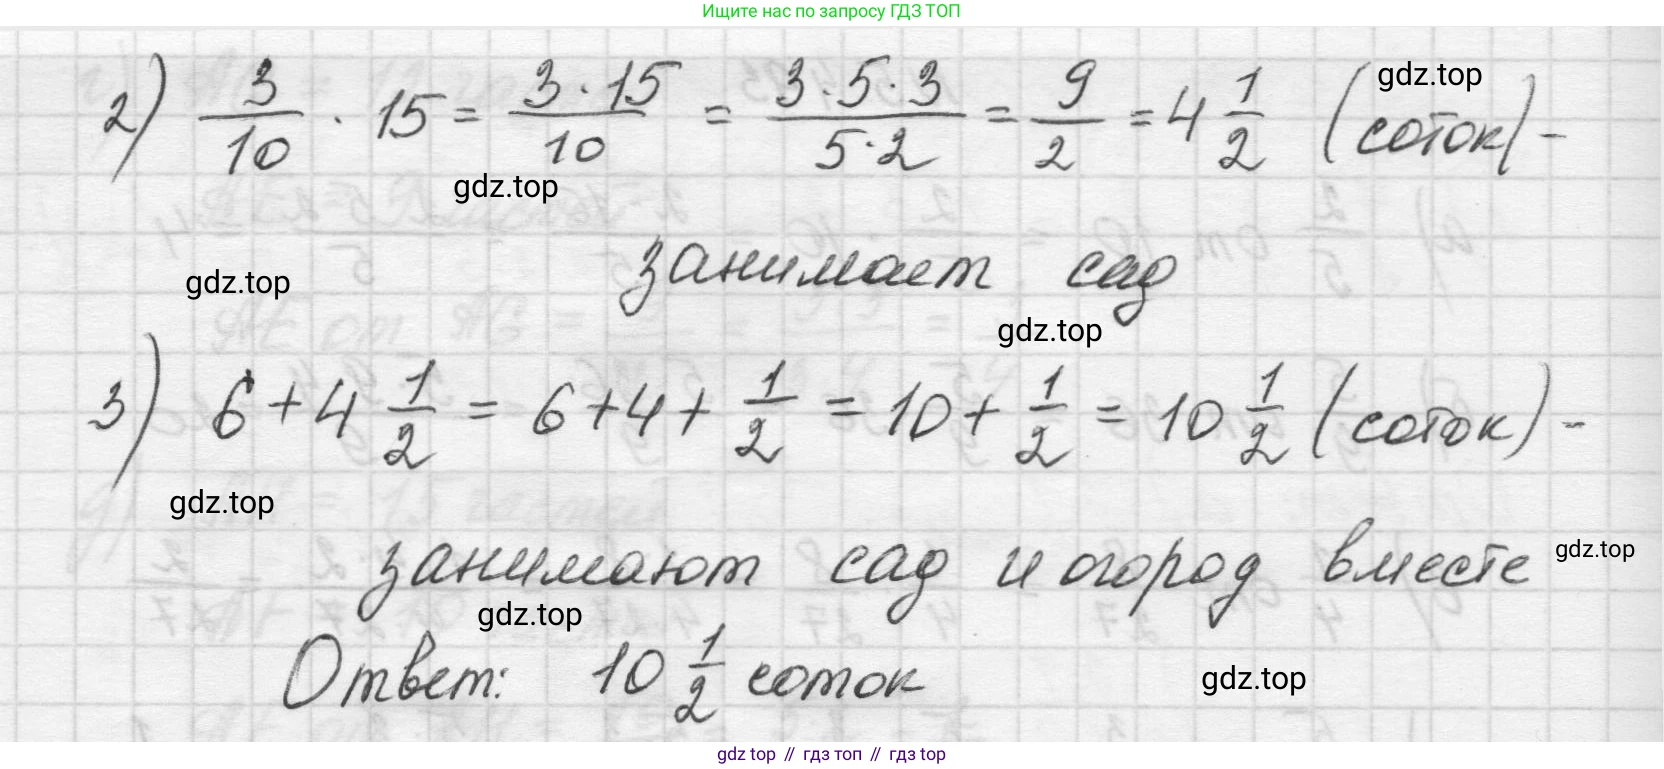 Ищите нас по запросу ГДЗ ТОП
2) 3/10 · 15 = 3·15/10 = 3·5·3/5·2 = 9/2 = 4 1/2 (соток) -
gdz.top
gdz.top
занимает сад
gdz.top
gdz.top
3) 6 + 4 1/2 = 6 + 4 + 1/2 = 10 + 1/2 = 10 1/2 (соток) -
gdz.top
занимают сад и огород вместе
gdz.top
gdz.top
Ответ: 10 1/2 соток
gdz.top
gdz top // гдз топ // gdz top